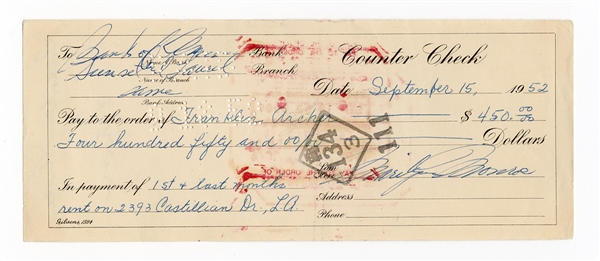 To Bank of America Bank
Counter Check
Name of Bank
Sunset Branch
Name of Branch
Date September 15, 1952
Same
Bank Address
Pay to the order of Franklin Archer $ 450. 00/00
Four hundred fifty and 00/ Dollars
111
134
3
Marilyn Monroe
In payment of 1st & last months
Address
rent on 2393 Castillian Dr., L.A.
Phone
Gibsons, 1584